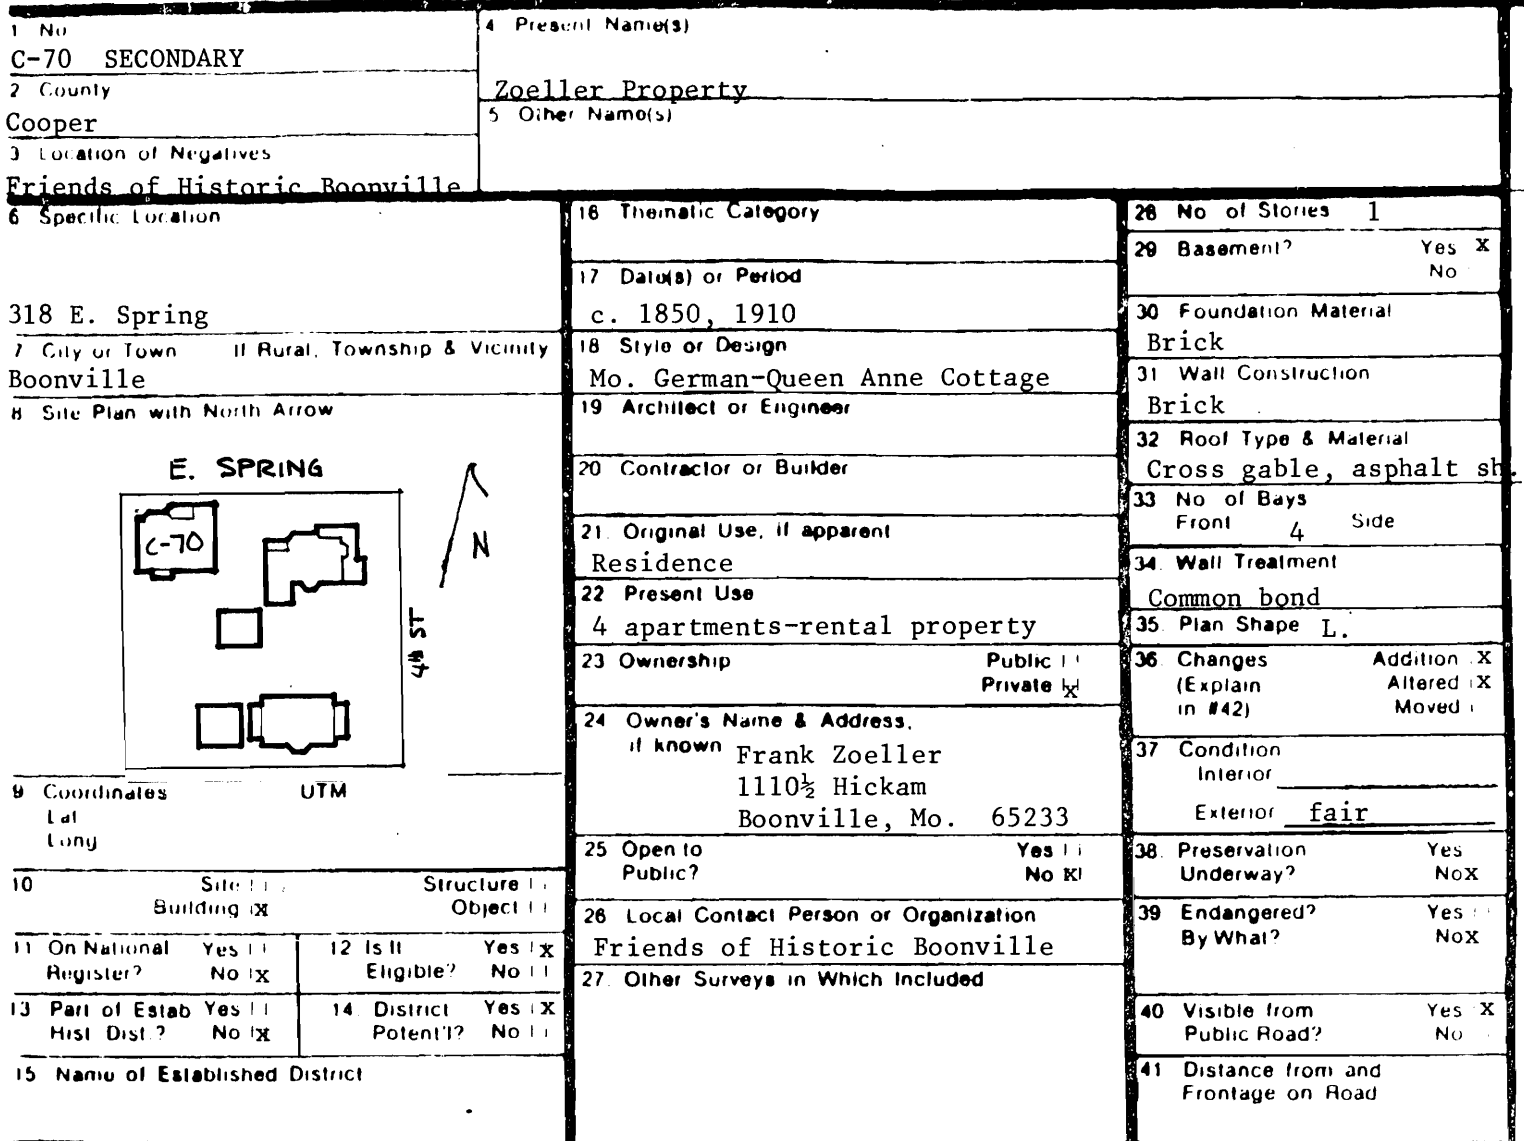 1 No
C-70 SECONDARY
2 County
Cooper
3 Location of Negatives
Friends of Historic Boonville
4 Present Name(s)
Zoeller Property
5 Other Name(s)
6 Specific Location
318 E. Spring
7 City or Town If Rural, Township & Vicinity
Boonville
8 Site Plan with North Arrow
E. SPRING
C-70
N
4th ST
9 Coordinates UTM
Lat
Long
10 Site Structure
Building X Object
11 On National Yes
Register? No X
12 Is It Yes X
Eligible? No
13 Part of Estab Yes
Hist Dist.? No X
14 District Yes X
Potent'l? No
15 Name of Established District
16 Thematic Category
17 Date(s) or Period
c. 1850, 1910
18 Style or Design
Mo. German-Queen Anne Cottage
19 Architect or Engineer
20 Contractor or Builder
21. Original Use, if apparent
Residence
22 Present Use
4 apartments-rental property
23 Ownership Public
Private X
24 Owner's Name & Address,
if known Frank Zoeller
1110½ Hickam
Boonville, Mo. 65233
25 Open to Yes
Public? No X
26 Local Contact Person or Organization
Friends of Historic Boonville
27. Other Surveys in Which Included
28 No of Stories 1
29 Basement? Yes X
No
30 Foundation Material
Brick
31 Wall Construction
Brick
32 Roof Type & Material
Cross gable, asphalt sh.
33 No of Bays
Front 4 Side
34. Wall Treatment
Common bond
35. Plan Shape L.
36. Changes Addition X
(Explain Altered X
in #42) Moved
37 Condition
Interior
Exterior fair
38. Preservation Yes
Underway? No X
39 Endangered? Yes
By What? No X
40 Visible from Yes X
Public Road? No
41 Distance from and
Frontage on Road